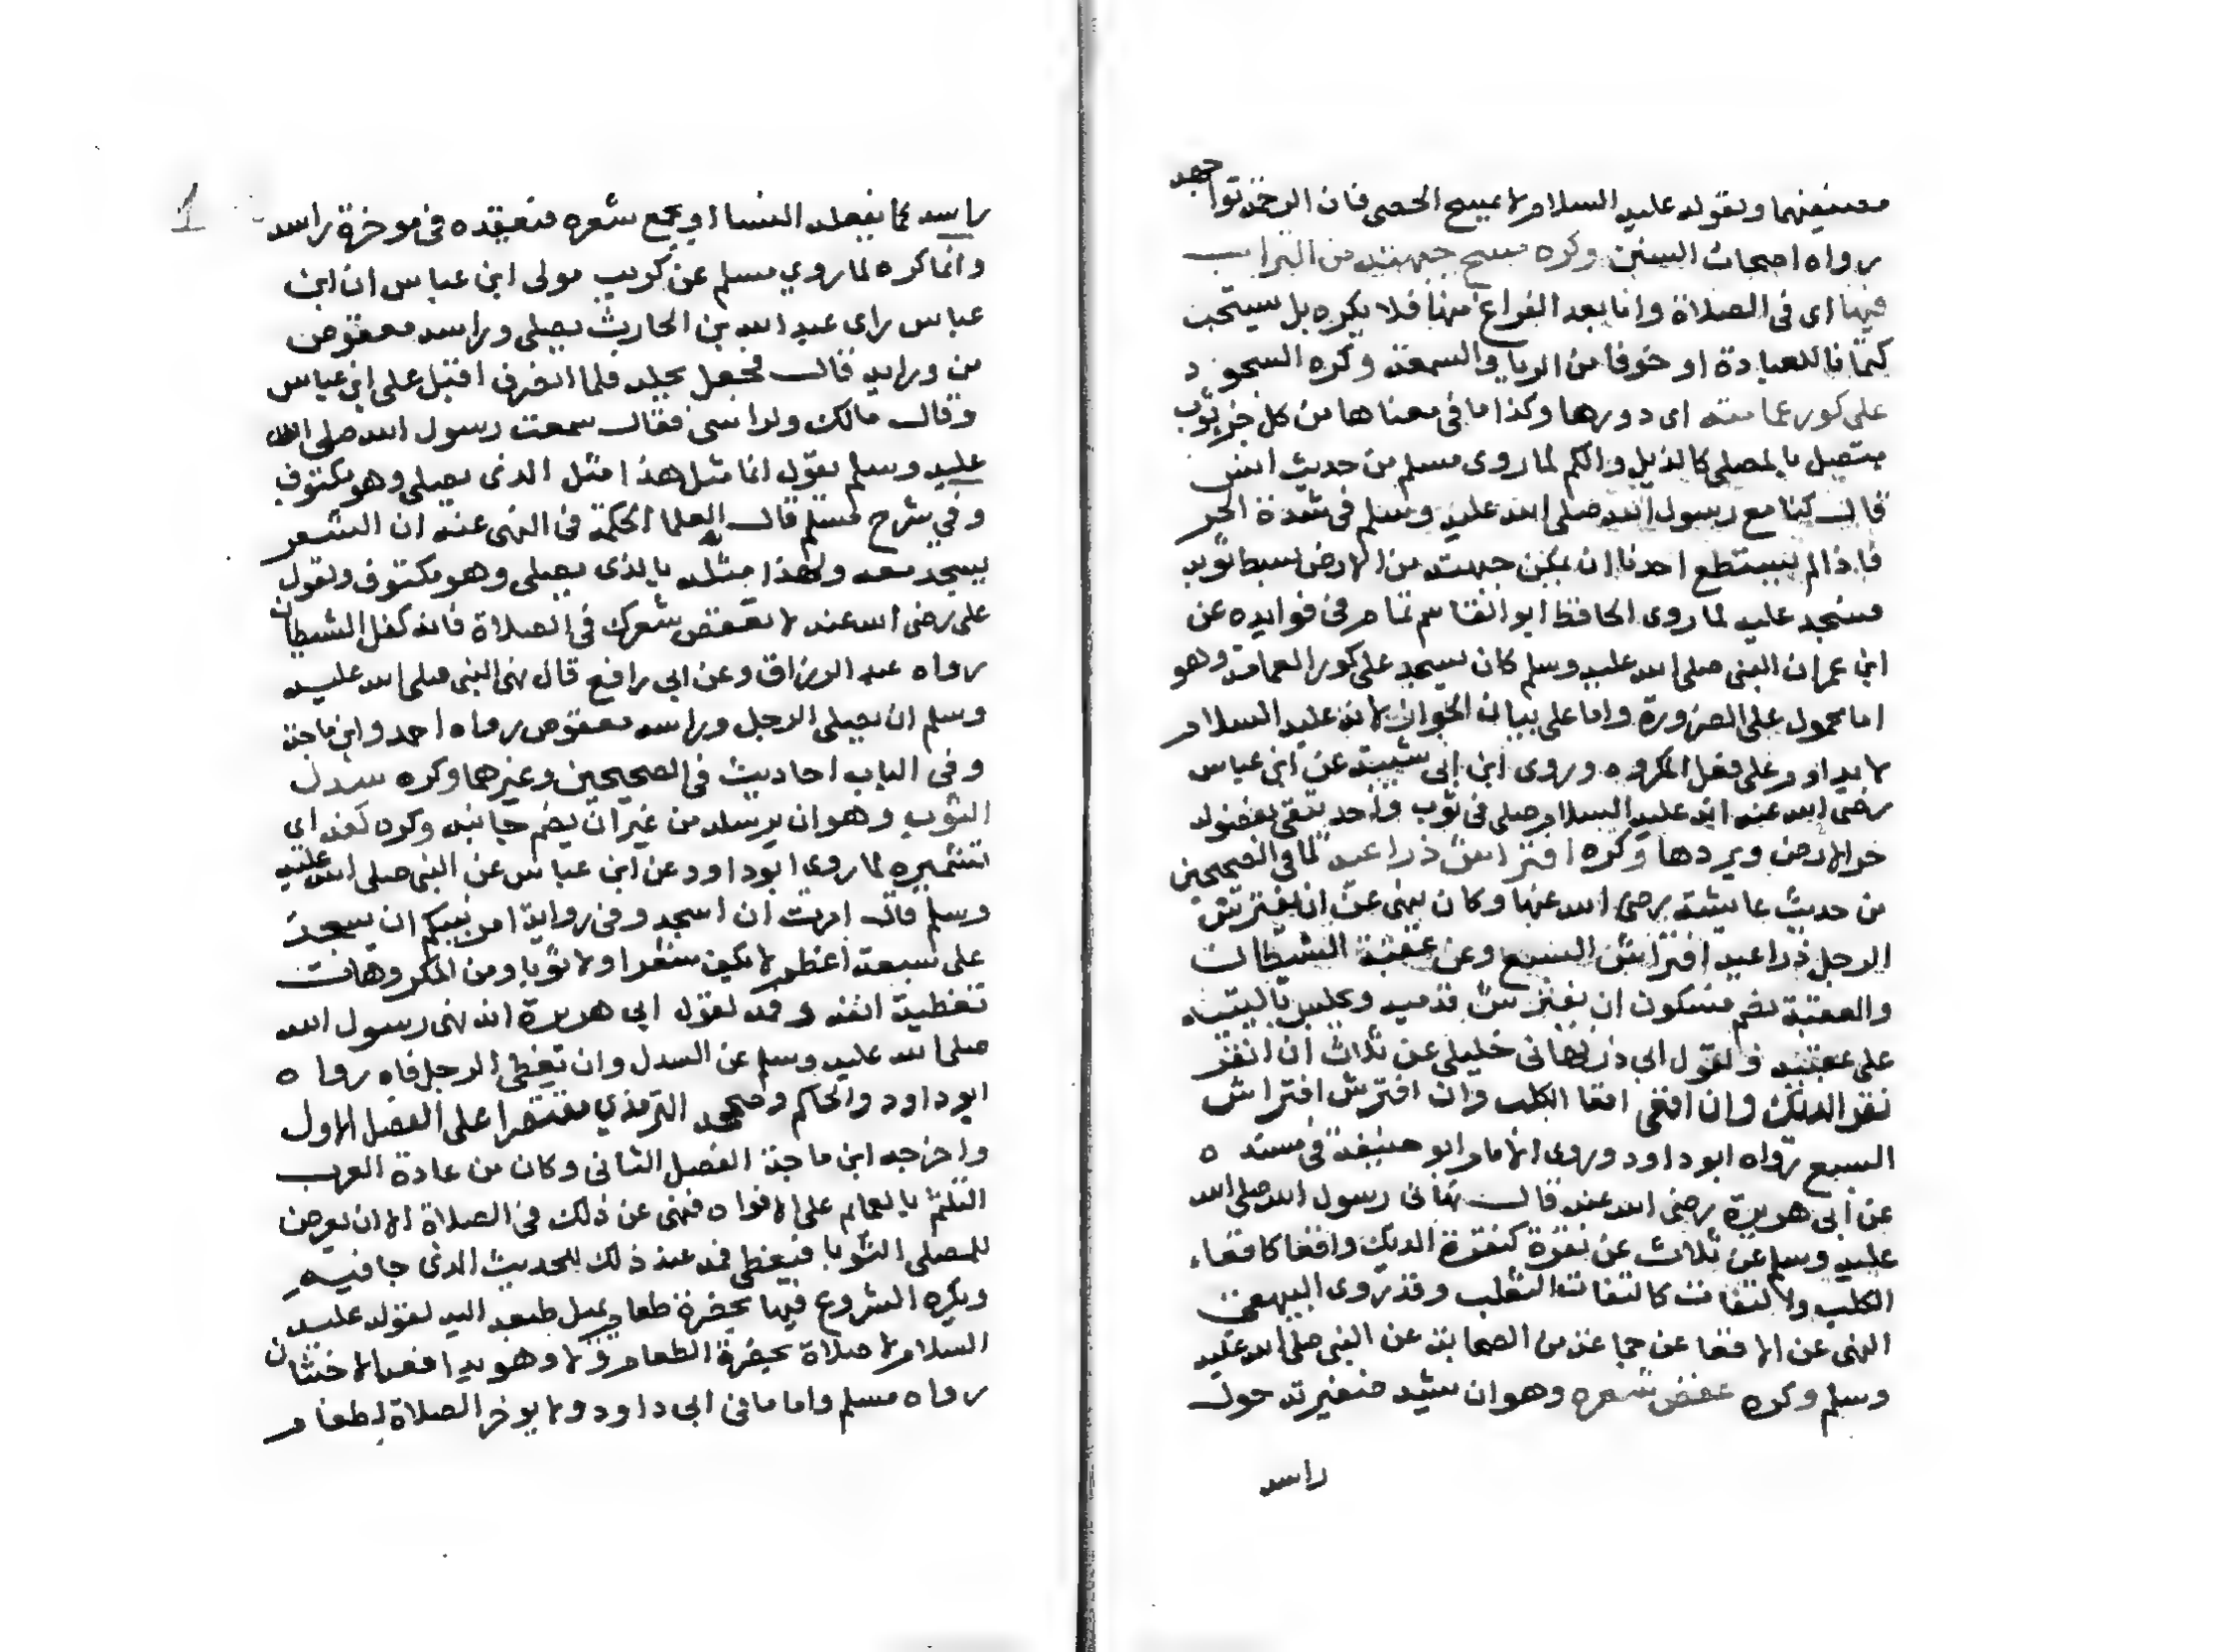 مصنفيهما ولقوله عليه السلام لا يمسح الحصى فان الرحمة تواجهه
رواه اصحاب السنن وكره مسح جبهته من التراب
فيها اى فى الصلاة واما بعد الفراغ منها فلا يكره بل يستحب
كتمانا للعبادة او خوفا من الريا والسمعة وكره السجود
على كور عمامته اى دورها وكذا ما فى معناها من كل جز ثوب
متصل بالمصلى كالذيل والكم لما روى مسلم من حديث انس
قال كنا مع رسول الله صلى الله عليه وسلم فى شدة الحر
فاذا لم يستطع احدنا ان يمكن جبهته من الارض بسط ثوبه
فسجد عليه لما روى الحافظ ابو القاسم تمام فى فوايده عن
ابن عمر ان النبى صلى الله عليه وسلم كان يسجد على كور العمامة وهو
اما محمول على الضرورة واما على بيان الجواز لانه عليه السلام
لا يداوم على فعل المكروه وروى ابن ابى شيبة عن ابن عباس
رضى الله عنه انه عليه السلام صلى فى ثوب واحد يتقى بفضوله
حر الارض وبردها وكره افتراش ذراعيه لما فى الصحيحين
من حديث عايشة رضى الله عنها وكان ينهى عن ان يفترش
الرجل ذراعيه افتراش السبع وعن عقبة الشيطان
والعقبة بضم فسكون ان يفترش قدميه ويجلس باليتيه
على عقبيه ولقول ابى ذر نهانى خليلى عن ثلاث ان انقر
نقر الديك وان اقعى اقعا الكلب وان افترش افتراش
السبع رواه ابو داود وروى الامام ابو حنيفة فى مسنده
عن ابى هريرة رضى الله عنه قال نهانى رسول الله صلى الله
عليه وسلم عن ثلاث عن نقرة كنقرة الديك واقعا كاقعاء
الكلب ولالتفات كالتفات الثعلب وقد روى البيهقى
النهى عن الاقعا عن جماعة من الصحابة عن النبى صلى الله عليه
وسلم وكره عقص شعره وهو ان يشد ضفيرته حول
راسه
راسه كما يفعله النسا او يجمع شعره فيعقده فى موخرة راسه
وانما كره لما روى مسلم عن كريب مولى ابن عباس ان ابن
عباس راى عبد الله بن الحارث يصلى وراسه معقوص
من ورايه قال فجعل يحله فلما انصرف اقبل على ابن عباس
وقال مالك ولراسى فقال سمعت رسول الله صلى الله
عليه وسلم يقول انما مثل هذا مثل الذى يصلى وهو مكتوف
وفى شرح مسلم قال العلما الحكمة فى النهى عنه ان الشعر
يسجد معه ولهذا مثله بالذى يصلى وهو مكتوف ولقول
على رضى الله عنه لا تعقص شعرك فى الصلاة فانه كفل الشيطان
رواه عبد الرزاق وعن ابى رافع قال نهى النبى صلى الله عليه
وسلم ان يصلى الرجل وراسه معقوص رواه احمد وابن ماجة
وفى الباب احاديث فى الصحيحين وغيرهما وكره سدل
الثوب وهو ان يرسله من غير ان يضم جانبيه وكره كفه اى
تشميره لما روى ابو داود عن ابن عباس عن النبى صلى الله عليه
وسلم قال امرت ان اسجد وفى رواية امر نبيكم ان يسجد
على سبعة اعظم لا يكف شعرا ولا ثوبا ومن المكروهات
تغطية انفه و فمه لقول ابى هريرة انه نهى رسول الله
صلى الله عليه وسلم عن السدل وان يغطى الرجل فاه رواه
ابو داود والحاكم وصححه الترمذى مقتصرا على الفصل الاول
واخرجه ابن ماجة الفصل الثانى وكان من عادة العرب
التلثم بالعمايم على الافواه فنهى عن ذلك فى الصلاة الا ان يعرض
للمصلى الثوبا فيغطى فمه عند ذلك للحديث الذى جا فيه
ويكره الشروع فيها بحضرة طعام يميل طبعه اليه لقوله عليه
السلام لا صلاة بحضرة الطعام ولا وهو يدافعه الاخبثان
رواه مسلم واما ما فى ابى داود ولا يوخر الصلاة لطعام
1